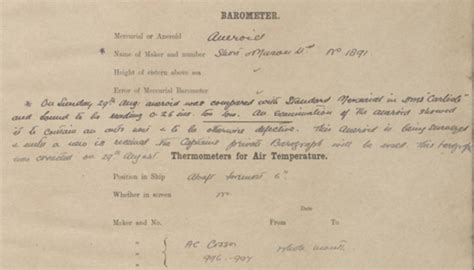 BAROMETER.
Mercurial or Aneroid Aneroid
* Name of Maker and number Short & Mason Ltd No 1891
Height of cistern above sea
Error of Mercurial Barometer
* On Sunday, 29th Aug. aneroid was compared with Standard Mercurial in HMS "Carlisle"
and found to be reading 0.26 ins. too low. An examination of the aneroid showed
it to contain an and to be otherwise defective. This Aneroid is being
& until a new is received the Captains private Barograph will be used. This barograph
was corrected on 29th August
Thermometers for Air Temperature.
Position in Ship Abaft foremost 6"
Whether in screen No
Maker and No. From To
A.C. Cossor whole month
996 - 997